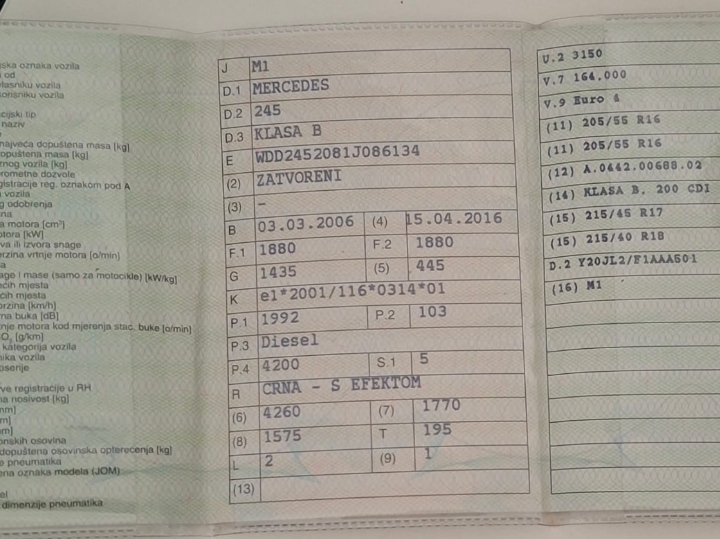 jska oznaka vozila
od
lasniku vozila
orisniku vozila
cijski tip
naziv
najveća dopuštena masa [kg]
opuštena masa [kg]
nog vozila [kg]
prometne dozvole
gistracije reg. oznakom pod A
vozila
g odobrenja
na
a motora [cm³]
otora [kW]
va ili izvora snage
erzina vrtnje motora [o/min]
a
age i mase (samo za motocikle) [kW/kg]
ćih mjesta
ćih mjesta
orzina [km/h]
rna buka [dB]
nje motora kod mjerenja stac. buke [o/min]
O₂ [g/km]
kategorija vozila
nika vozila
osenje
ve registracije u RH
na nosivost [kg]
mm]
m]
m]
onskih osovina
dopuštena osovinska opterećenja [kg]
e pneumatika
ena oznaka modela (JOM)
el
dimenzije pneumatika
J M1
D.1 MERCEDES
D.2 245
D.3 KLASA B
E WDD2452081J086134
(2) ZATVORENI
(3) –
B 03.03.2006 (4) 15.04.2016
F.1 1880 F.2 1880
G 1435 (5) 445
K e1*2001/116*0314*01
P.1 1992 P.2 103
P.3 Diesel
P.4 4200 S.1 5
R CRNA - S EFEKTOM
(6) 4260 (7) 1770
(8) 1575 T 195
L 2 (9) 1
(13)
U.2 3150
V.7 164,000
V.9 Euro 4
(11) 205/55 R16
(11) 205/55 R16
(12) A.0442.00688.02
(14) KLASA B. 200 CDI
(15) 215/45 R17
(15) 215/40 R18
D.2 Y20JL2/F1AAA501
(16) M1